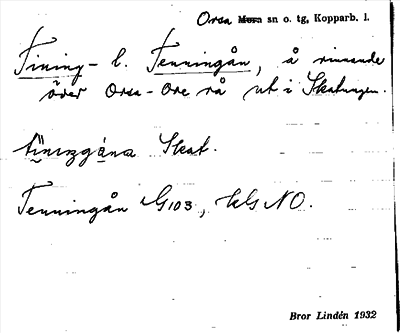 Orsa Mora sn o. tg, Kopparb. l.
Fining- l. Tenningån, å rinnande
över Orsa-Ore rå ut i Skatungen.
Skat.
Tenningån G103, kls NO.
Bror Lindén 1932